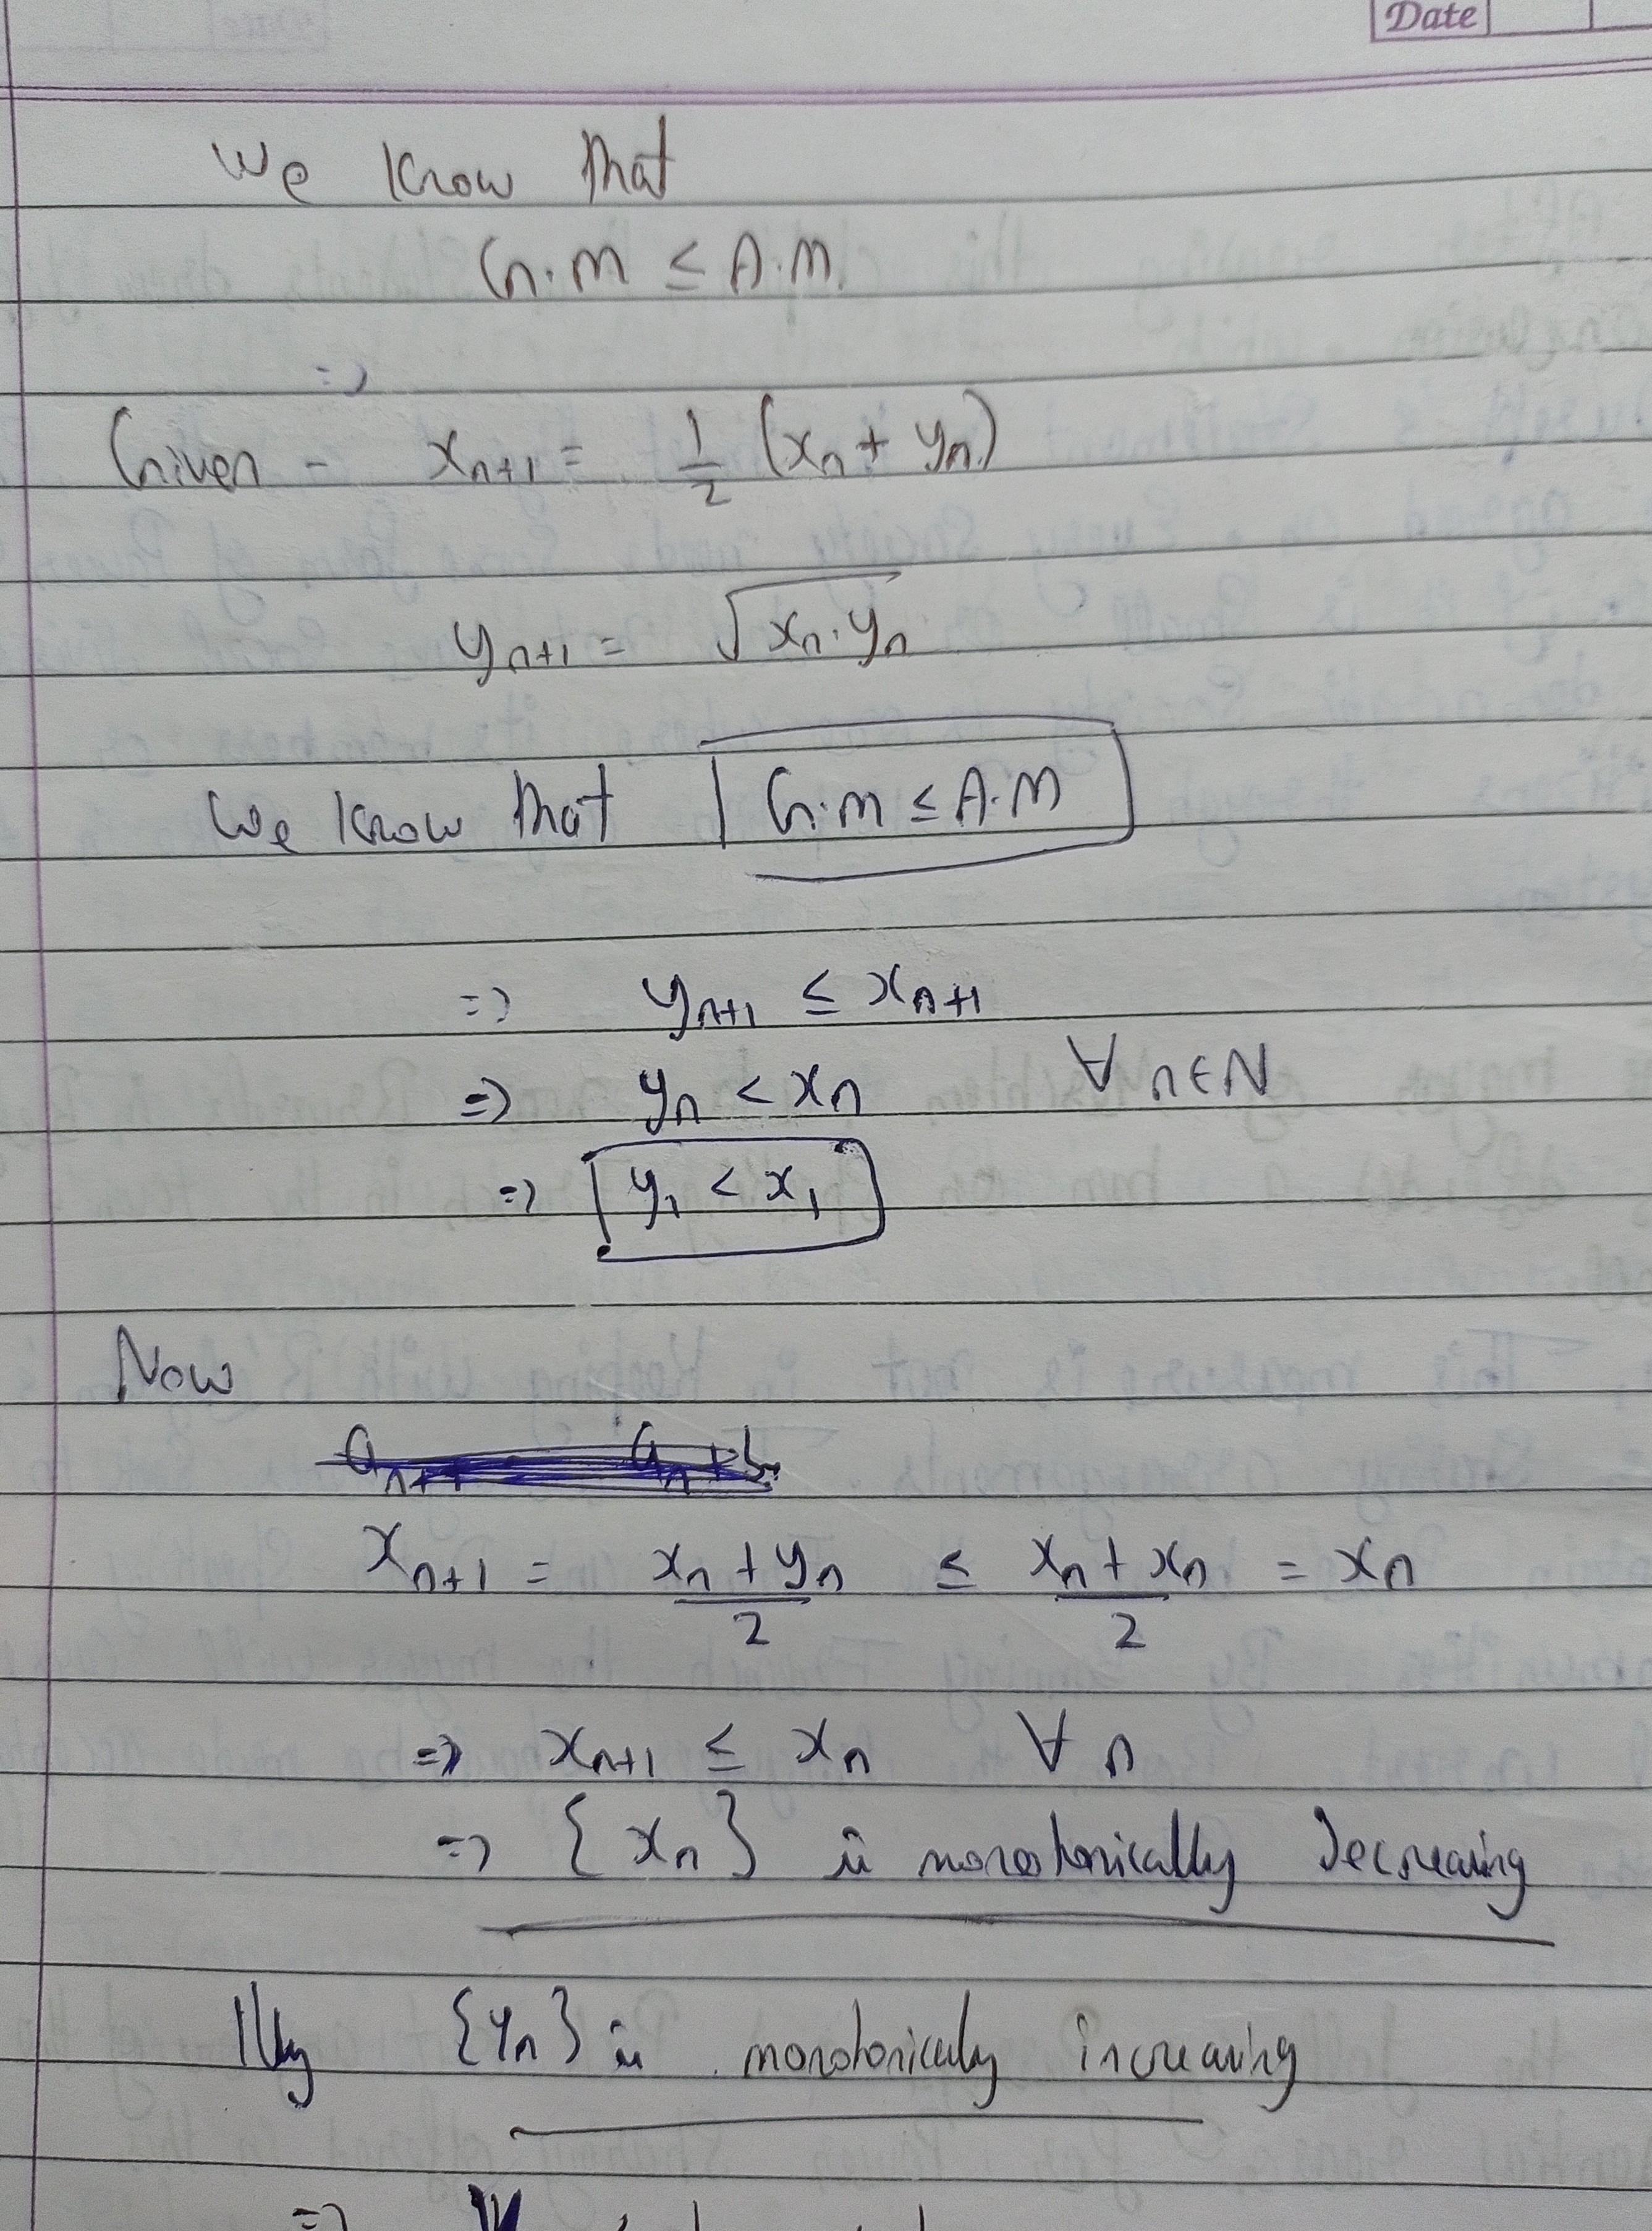 Date
We know that
G.M ≤ A.M.
=>
Given - x_{n+1} = 1/2 (x_n + y_n)
y_{n+1} = √(x_n . y_n)
We know that G.M ≤ A.M
=> y_{n+1} ≤ x_{n+1}
=> y_n < x_n ∀ n∈N
=> y_1 < x_1
Now
x_{n+1} = (x_n + y_n)/2 ≤ (x_n + x_n)/2 = x_n
=> x_{n+1} ≤ x_n ∀ n
=> {x_n} is monotonically decreasing
llly {y_n} is monotonically increasing
=>